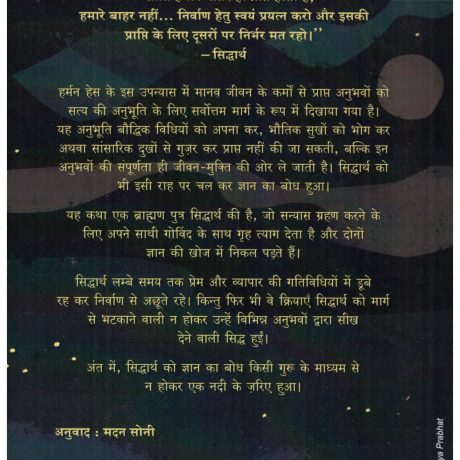 हमारे बाहर नहीं... निर्वाण हेतु स्वयं प्रयत्न करो और इसकी
प्राप्ति के लिए दूसरों पर निर्भर मत रहो।”
–सिद्धार्थ
हर्मन हेस के इस उपन्यास में मानव जीवन के कर्मों से प्राप्त अनुभवों को
सत्य की अनुभूति के लिए सर्वोत्तम मार्ग के रूप में दिखाया गया है।
यह अनुभूति बौद्धिक विधियों को अपना कर, भौतिक सुखों को भोग कर
अथवा सांसारिक दुखों से गुज़र कर प्राप्त नहीं की जा सकती, बल्कि इन
अनुभवों की संपूर्णता ही जीवन-मुक्ति की ओर ले जाती है। सिद्धार्थ को
भी इसी राह पर चल कर ज्ञान का बोध हुआ।
यह कथा एक ब्राह्मण पुत्र सिद्धार्थ की है, जो सन्यास ग्रहण करने के
लिए अपने साथी गोविंद के साथ गृह त्याग देता है और दोनों
ज्ञान की खोज में निकल पड़ते हैं।
सिद्धार्थ लम्बे समय तक प्रेम और व्यापार की गतिविधियों में डूबे
रह कर निर्वाण से अछूते रहे। किन्तु फिर भी वे क्रियाएं सिद्धार्थ को मार्ग
से भटकाने वाली न होकर उन्हें विभिन्न अनुभवों द्वारा सीख
देने वाली सिद्ध हुईं।
अंत में, सिद्धार्थ को ज्ञान का बोध किसी गुरू के माध्यम से
न होकर एक नदी के ज़रिए हुआ।
अनुवाद : मदन सोनी
ya Prabhat